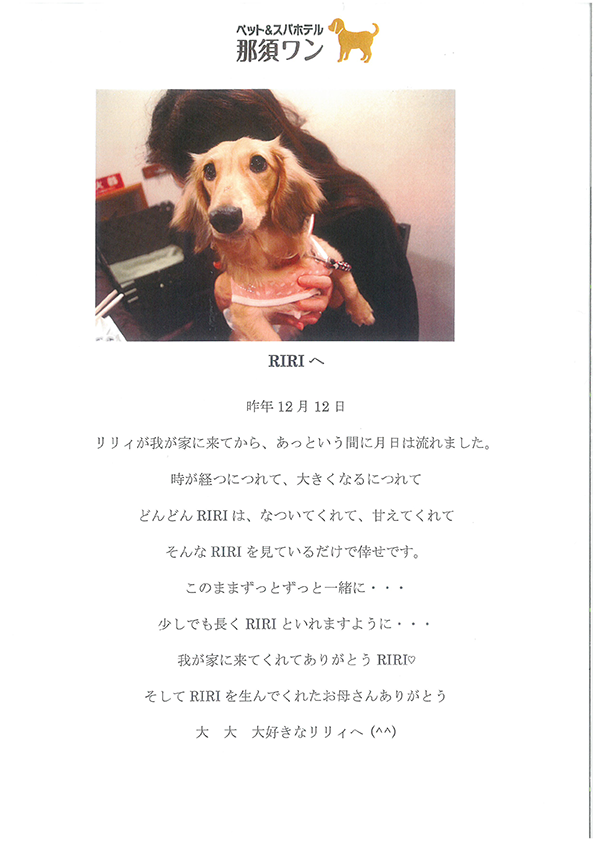 ペット&スパホテル
那須ワン
RIRI へ
昨年 12 月 12 日
リリィが我が家に来てから、あっという間に月日は流れました。
時が経つにつれて、大きくなるにつれて
どんどん RIRI は、なついてくれて、甘えてくれて
そんな RIRI を見ているだけで倖せです。
このままずっとずっと一緒に・・・
少しでも長く RIRI といれますように・・・
我が家に来てくれてありがとう RIRI♡
そして RIRI を生んでくれたお母さんありがとう
大　大　大好きなリリィへ (^^)